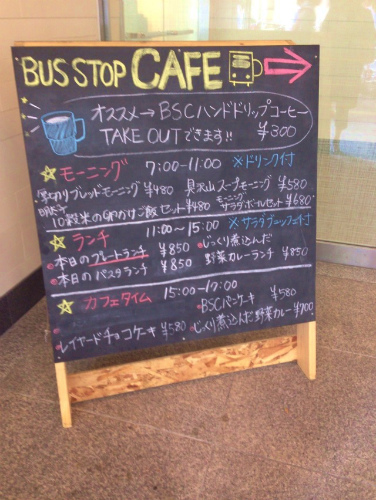 BUS STOP CAFE
オススメ→BSCハンドドリップコーヒー
TAKE OUTできます!! ¥300
モーニング 7:00-11:00 ※ドリンク付
厚切りブレッドモーニング ¥480 具沢山スープモーニング ¥580
10穀米のGMかけご飯セット ¥480 モーニングサラダボールセット ¥680
ランチ 11:00~15:00 ※サラダブュッフェ付
・本日のプレートランチ ¥850 ・じっくり煮込んだ
・本日のパスタランチ ¥850 野菜カレーランチ ¥850
カフェタイム 15:00-19:00
・BSCパンケーキ ¥580
・レイヤードチョコケーキ ¥580 ・じっくり煮込んだ野菜カレー ¥700